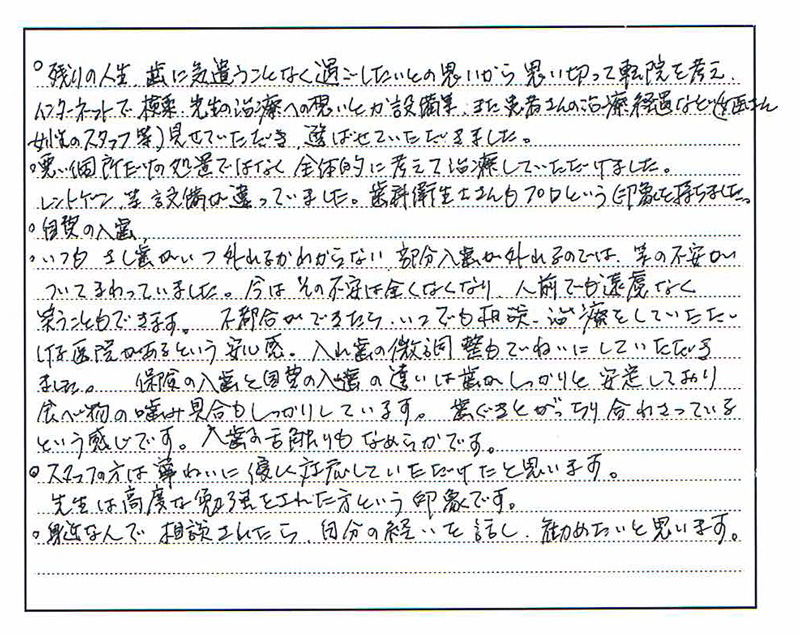 ○残りの人生、歯に気遣うことなく過ごしたいとの思いから思い切って転院を考え、
インターネットで検索、先生の治療への思いとか設備等、また患者さんの治療経過など(
女性のスタッフ等)見せていただき、選ばせていただきました。
○悪い個所だけの処置ではなく全体的に考えて治療していただけました。
レントゲン、等設備が違っていました。歯科衛生士さんもプロという印象を持ちました。
○自費の入歯、
○いつも さし歯がいつ外れるかわからない、部分入歯が外れるのでは、等の不安が
ついてまわっていました。今はその不安は全くなくなり、人前でも遠慮なく
笑うこともできます。 不都合ができたら、いつでも相談、治療をしていただ
ける医院があるという安心感。入れ歯の微調整もていねいにしていただき
ました。 保険の入歯と自費の入歯の違いは歯がしっかりと安定しており
食べ物の噛み具合もしっかりしています。 歯ぐきとがっちり合わさっている
という感じです。入歯の舌触りもなめらかです。
○スタッフの方は 寧ねいに優しく対応していただけたと思います。
先生は高度な勉強をされた方という印象です。
○身近な人で 相談されたら、自分の経いを話し、勧めたいと思います。